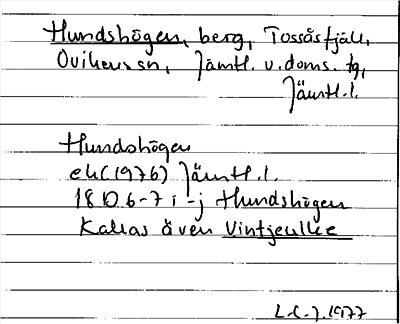 Hundshögen, berg, Tossåsfjäll,
Ovikens sn, Jämtl. v. doms. tg,
Jämtl. l.
Hundshögen
ek (1976) Jämtl. l.
18 D 6-7 i-j Hundshögen
Kallas även Vintjeullie
L-C-J. 1977